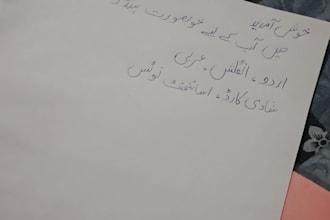 خوش آمدید
میں آپ کے لیے خوبصورت
اردو، انگلش، عربی
شادی کارڈ، اسائنمنٹ نوٹس